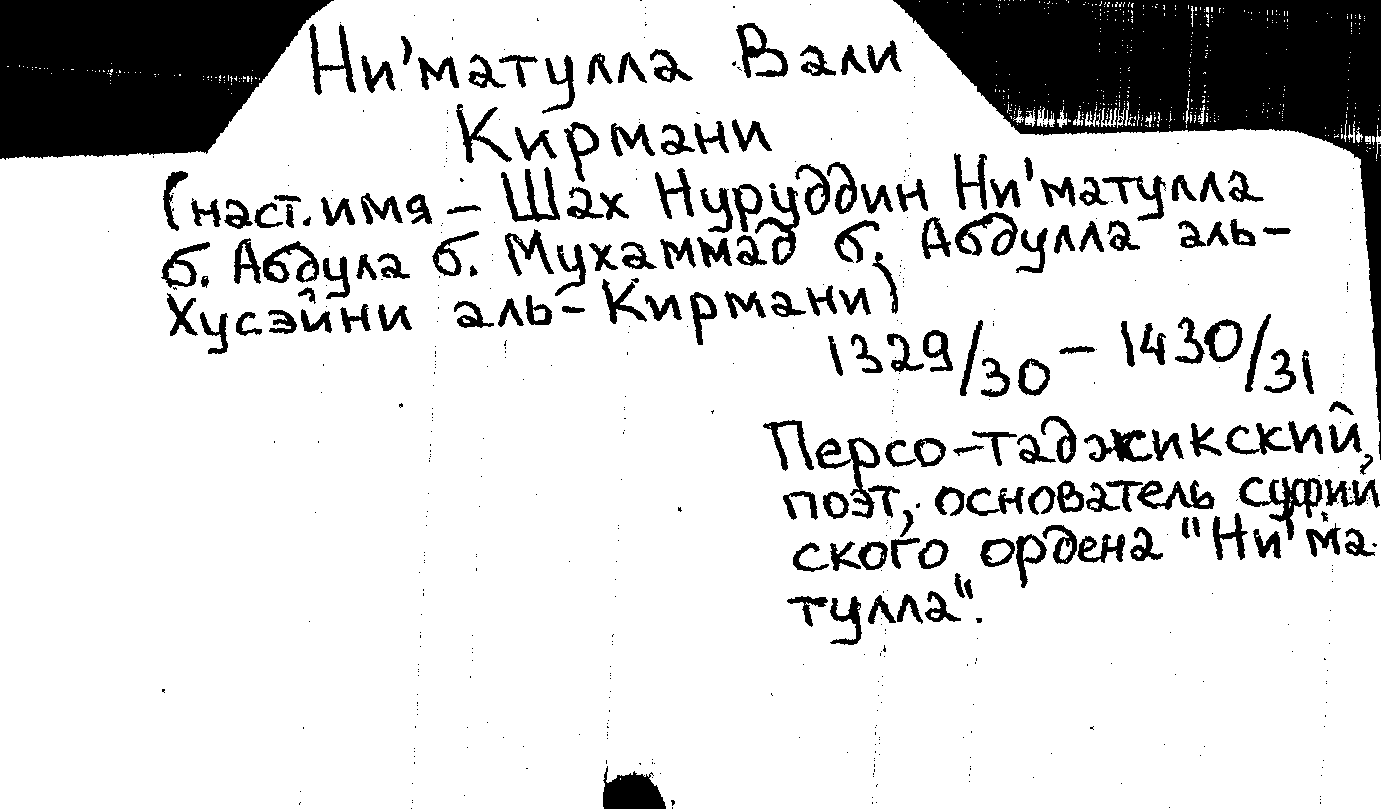 Ни'матулла Вали
Кирмани
(наст. имя – Шах Нуруддин Ни'матулла
б. Абдула б. Мухаммад б. Абдулла аль-
Хусэйни аль-Кирмани)
1329/30 – 1430/31
Персо-таджикский,
поэт, основатель суфий
ского ордена "Ни'ма
тулла".